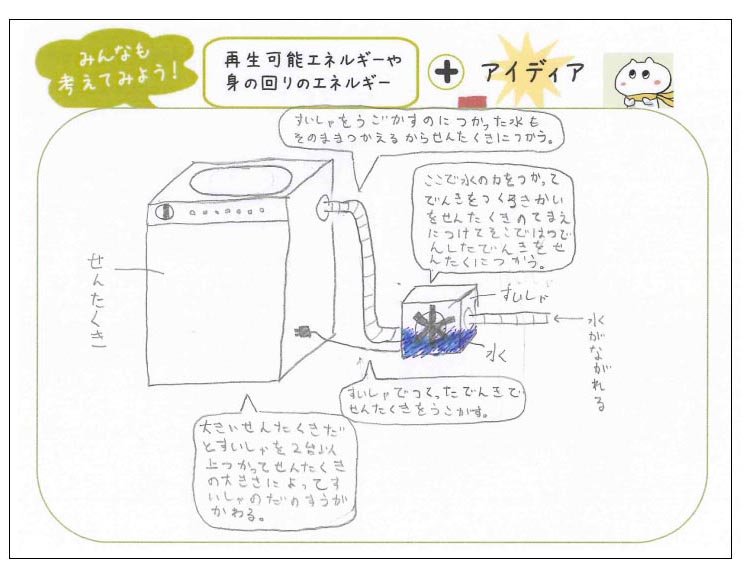 みんなも
考えてみよう!
再生可能エネルギーや
身の回りのエネルギー
+
アイディア
すいしゃをうごかすのにつかった水も
そのままつかえるからせんたくきにつかう。
ここで水の力をつかって
でんきをつくるきかい
をせんたくきのてまえ
につけてそこではつで
んしたでんきをせ
んたくにつかう。
せんたくき
すいしゃ
水がながれる
水
すいしゃでつくったでんきで
せんたくきをうごかす。
大きいせんたくきだ
とすいしゃを2台以
上つかってせんたくき
の大きさによってす
いしゃのだいのすうが
かわる。